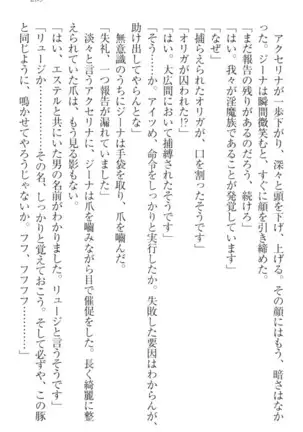 アクセリナが一歩下がり、深々と頭を下げ、上げる。その顔にはもう、暗さはなか
った。ジーナは瞬間微笑むと、すぐに顔を引き締めた。
「まだ報告の残りがあるのだろう、続けろ」
「はい。我々が淫魔族であることが発覚しています」
「なぜ」
「捕らえられたオリガが、口を割ったそうです」
「オリガが囚われた？」
「はい。大広間において捕縛されたそうです」
「そうか……。アイツめ、命令をしっかりと実行したか。失敗した要因はわからんが、
助け出してやらんとな」
無意識のうちにジーナは手袋を取り、爪を噛んだ。
「失礼、一つ報告が漏れていました」
淡々と言うアクセリナに、ジーナは爪を噛みながら目で催促をした。長く綺麗に整
えられていた爪は、もう見る影もない。
「はい、エステルと共にいた男の名前がわかりました。リュージと言うそうです」
「リュージか………。その名、しっかりと覚えておこう。そして必ずや、この豚
と同じように、鳴かせてやろうじゃないか。フフ、フフフフ………」